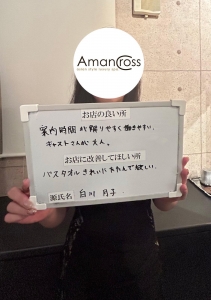 AmanCross
お店の良い所
案内時間が解りやすく働きやすい。
キャストさんが大人。
お店に改善してほしい所
バスタオルきれいにたたんで欲しい。
源氏名 白川 月子